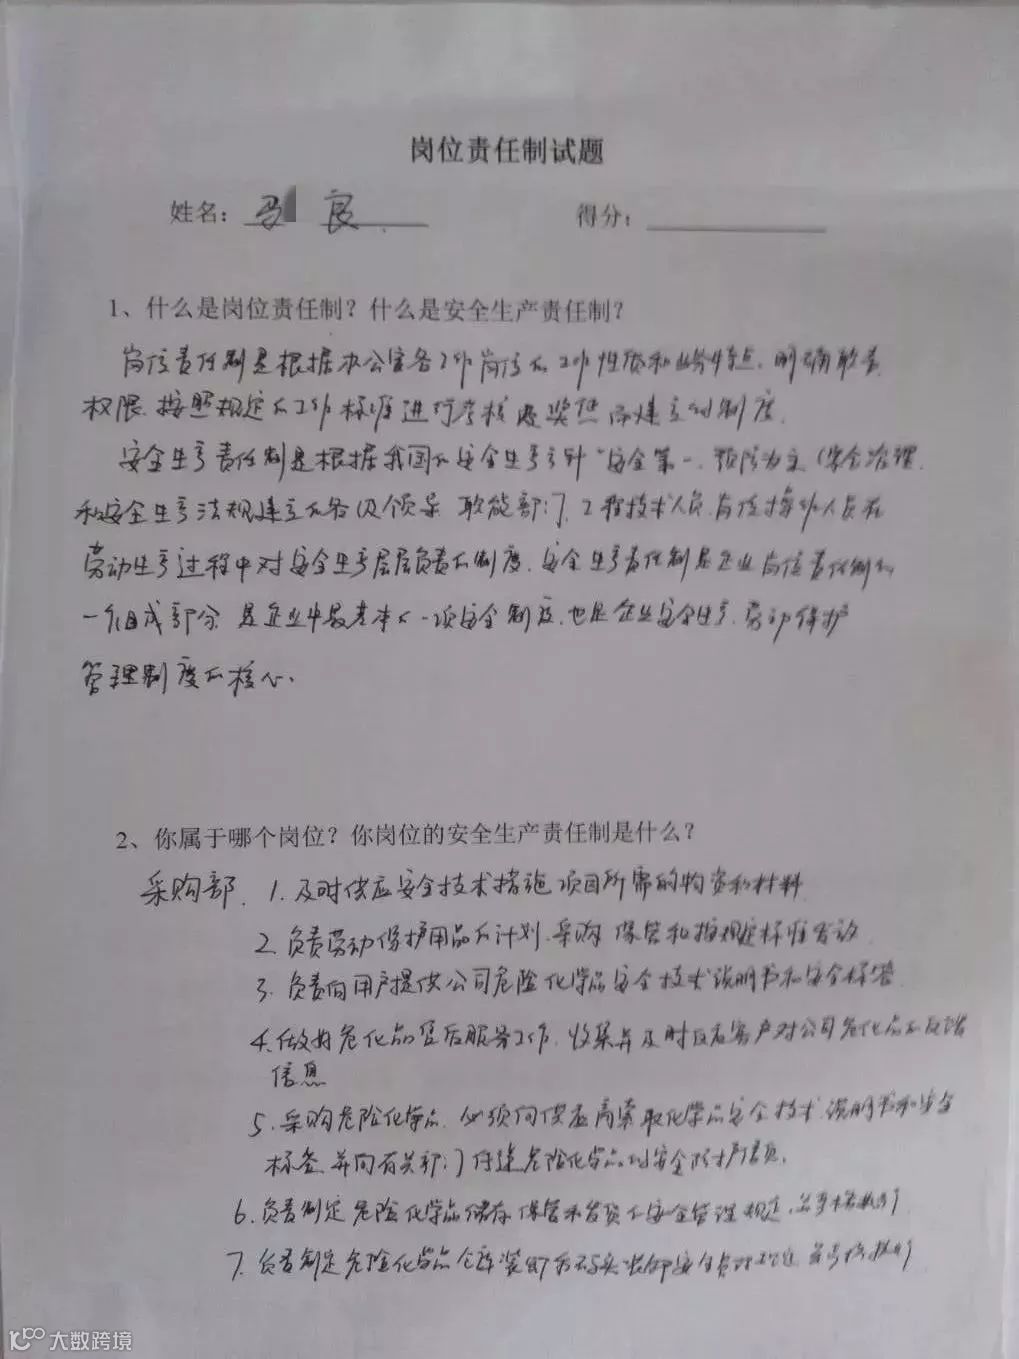 岗位责任制试题
姓名：马 良 得分：
1、什么是岗位责任制？什么是安全生产责任制？
岗位责任制是根据办公室各工作岗位的工作性质和业务特点，明确职责、
权限，按照规定的工作标准进行考核及奖惩而建立的制度。
安全生产责任制是根据我国的安全生产方针"安全第一、预防为主、综合治理
和安全生产法规建立的各级领导、职能部门、工程技术人员、岗位操作人员在
劳动生产过程中对安全生产层层负责的制度。安全生产责任制是企业岗位责任制的
一个组成部分，是企业中最基本的一项安全制度，也是企业安全生产、劳动保护
管理制度的核心。
2、你属于哪个岗位？你岗位的安全生产责任制是什么？
采购部. 1. 及时供应安全技术措施项目所需的物资和材料
2. 负责劳动保护用品的计划、采购、保管和按规定标准发放
3. 负责向用户提供公司危险化学品安全技术说明书和安全标签
4. 做好危化品售后服务工作，收集并及时反应客户对公司危化品的反馈
信息
5. 采购危险化学品，必须向供应商索取化学品安全技术说明书和安全
标签，并向有关部门传递危险化学品的安全防护信息。
6. 负责制定危险化学品储存、保管和发货的安全管理规定，并严格执行
7. 负责制定危险化学品仓库装卸和码头装卸安全管理规定，并严格执行
大数跨境